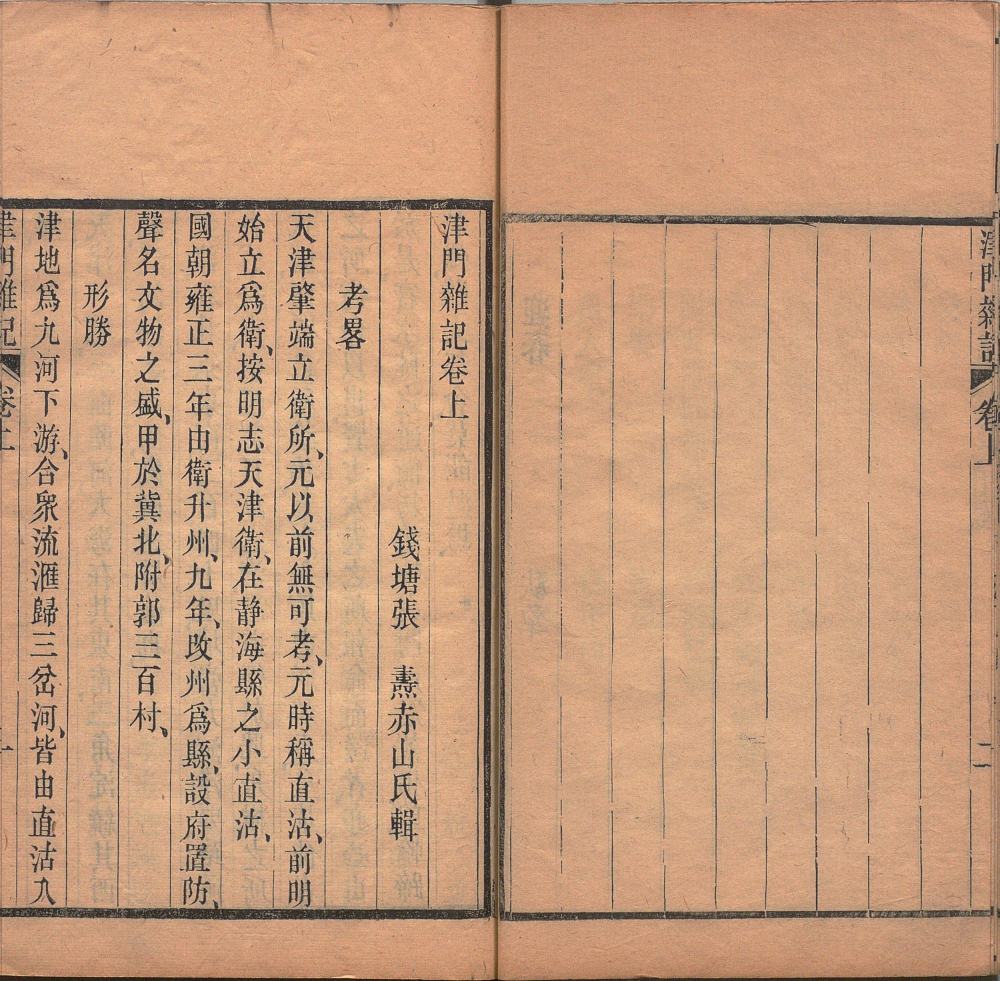 津門雜記
卷上
二
津門雜記卷上
錢塘張 燾赤山氏輯
考畧
天津肇端立衛所、元以前無可考、元時稱直沽、前明
始立爲衛、按明志天津衛、在静海縣之小直沽、
國朝雍正三年由衛升州、九年、改州爲縣、設府置防、
聲名文物之盛、甲於冀北、附郭三百村、
形勝
津地爲九河下游、合衆流滙歸三岔河、皆由直沽入
津門雜記
卷上
一